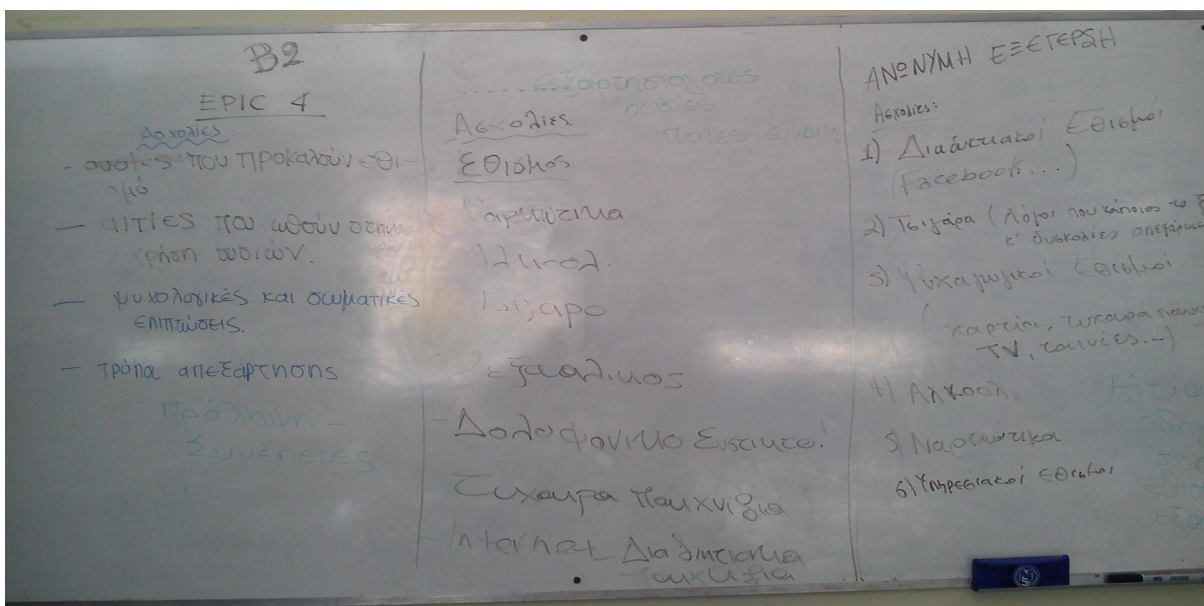 B2
EPIC 4
Ασχολίες:
- ουσίες που προκαλούν εθι-
σμό
- αιτίες που ωθούν στην
χρήση ουσιών.
- ψυχολογικές και σωματικές
επιπτώσεις.
- τρόποι απεξάρτησης
Πρόληψη -
Συνέπειες
Εξαρτησιογόνες
ουσίες
Ποιες είναι;
Ασχολίες
Εθισμος
Ναρκωτικα
Αλκοολ
Τσιγαρο
Σεξουαλικος
- Δολοφονικο Ενστικτο!
Τυχαιρα παιχνιδια
- Internet Διαδικτιακα
παιχνιδια
ΑΝΩΝΥΜΗ ΕΞΕΓΕΡΣΗ
Ασχολίες:
1) Διαδικτυακοί Εθισμοί
(Facebook...)
2) Τσιγάρα (Λόγοι που κάποιος το
κ' δυσκολίες
3) Ψυχαγωγικοί Εθισμοί
(χαρτιά, τυχερά
TV, ταινίες...)
4) Αλκοόλ
5) Ναρκωτικά
6) Υπηρεσιακοί Εθισμοί